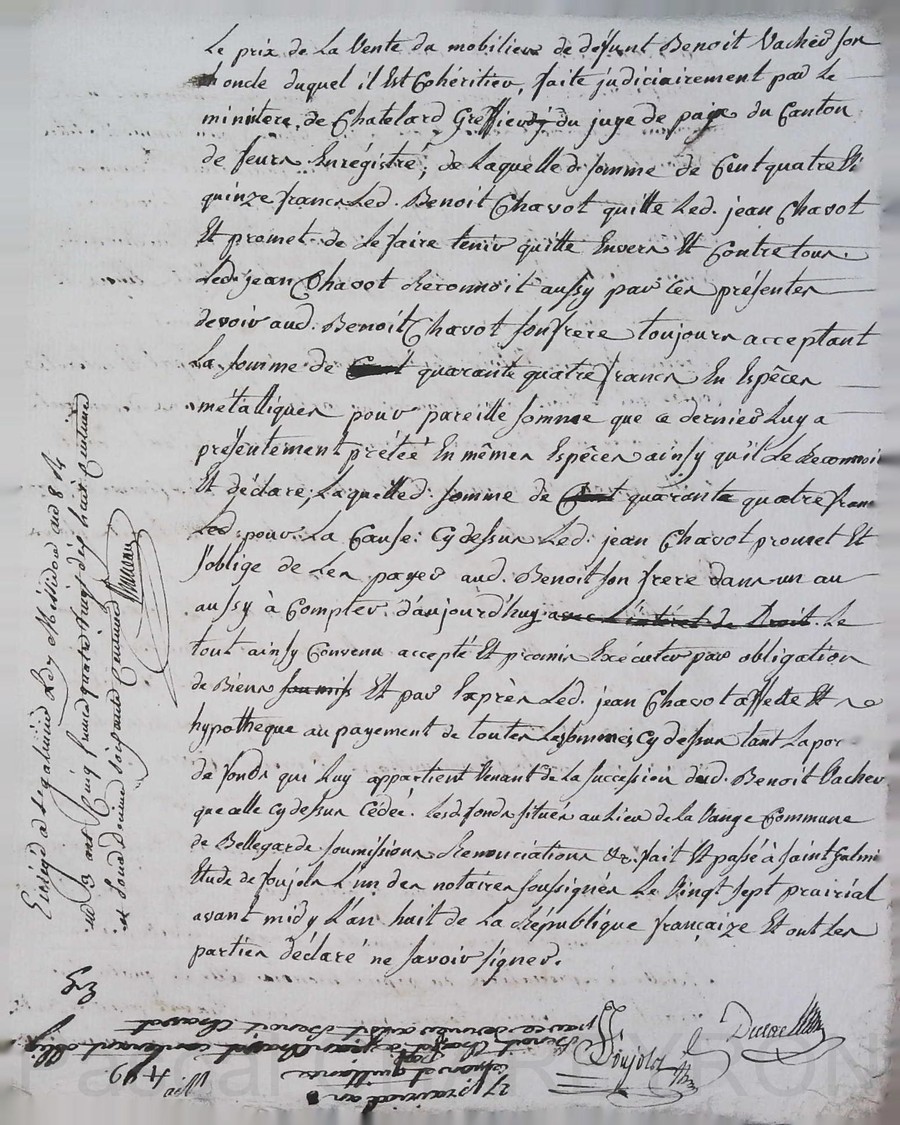 Le prix de La Vente du mobilier de defunt Benoit Vacher son
oncle duquel il Est Cohéritier, faite judiciairement par Le
ministere de Chatelard Greffier du juge de paix du Canton
de feurs Enrégistré, de Laquelle d. somme de Cent quatre Et
quinze francs Led. Benoit Chavot quitte Led. jean Chavot
Et promet de Le faire tenir quitte Envers Et Contre tous.
Led. jean Chavot Reconnoit aussy par Ces présentes
devoir aud. Benoit Chavot son frere toujours acceptant
La somme de Cent quarante quatre francs En Espêces
métalliques pour pareille somme que ce dernier Luy a
présentement prétéé En mêmes Espêces ainsy qu'il Le Reconnoi
Et déclare; Laquelle d. somme de Cent quarante quatre fran
Led. pour La Cause Cy dessus Led. jean Chavot promet Et
s'oblige de Les payer aud. Benoit son frere dans un an
aussy à Compter d'aujourd'huy avec L'intérêt de Droit. Le
tout ainsy Convenu accepté Et promis Exécuter par obligation
de Biens soumis Et par Exprès Led. jean Chavot affecte Et
hypotheque au payement de toutes Les sommes Cy dessus tant La por
de fonds qui Luy appartient Venant de La succession dud. Benoit Vacher
que celle Cy dessus Cédéé. Lesd. fonds situés au Lieu de La Vange Commune
de Bellegarde soumissions Renonciations &c. fait Et passé à Saint Galmi
Etude de Poujols L'un des notaires soussignés Le Vingt sept prairial
avant midy L'an huit de La République françaize Et ont Les
parties déclaré ne savoir signer.
Poujols
Enregistré à St galmier Le 7 Messidor an 8
et douze Décime soixante Centimes
27 prairial an 8
quittance
Benoit Chavot à jean Chavot contenant oblig
par ce dernier audit Benoit Chavot